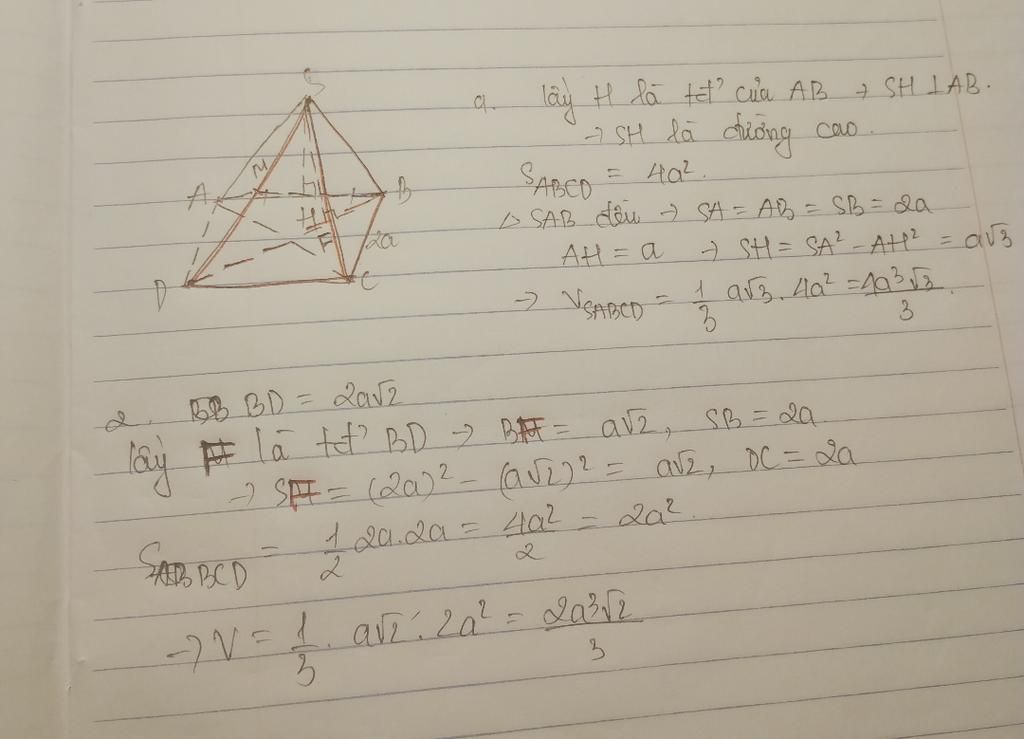 S
M
A
H
B
H
F
2a
D
C
a. lấy H là tđ' của AB → SH ⊥ AB.
→ SH là đường cao.
S_ABCD = 4a².
△ SAB đều → SA = AB = SB = 2a
AH = a → SH = SA² - AH² = a√3
→ V_SABCD = 1/3 a√3 . 4a² = 4a³√3/3.
2. BD = 2a√2
lấy H là tđ' BD → BH = a√2, SB = 2a
→ SH = (2a)² - (a√2)² = a√2, DC = 2a
S_BCD = 1/2 2a.2a = 4a²/2 = 2a².
→ V = 1/3 . a√2 . 2a² = 2a³√2/3